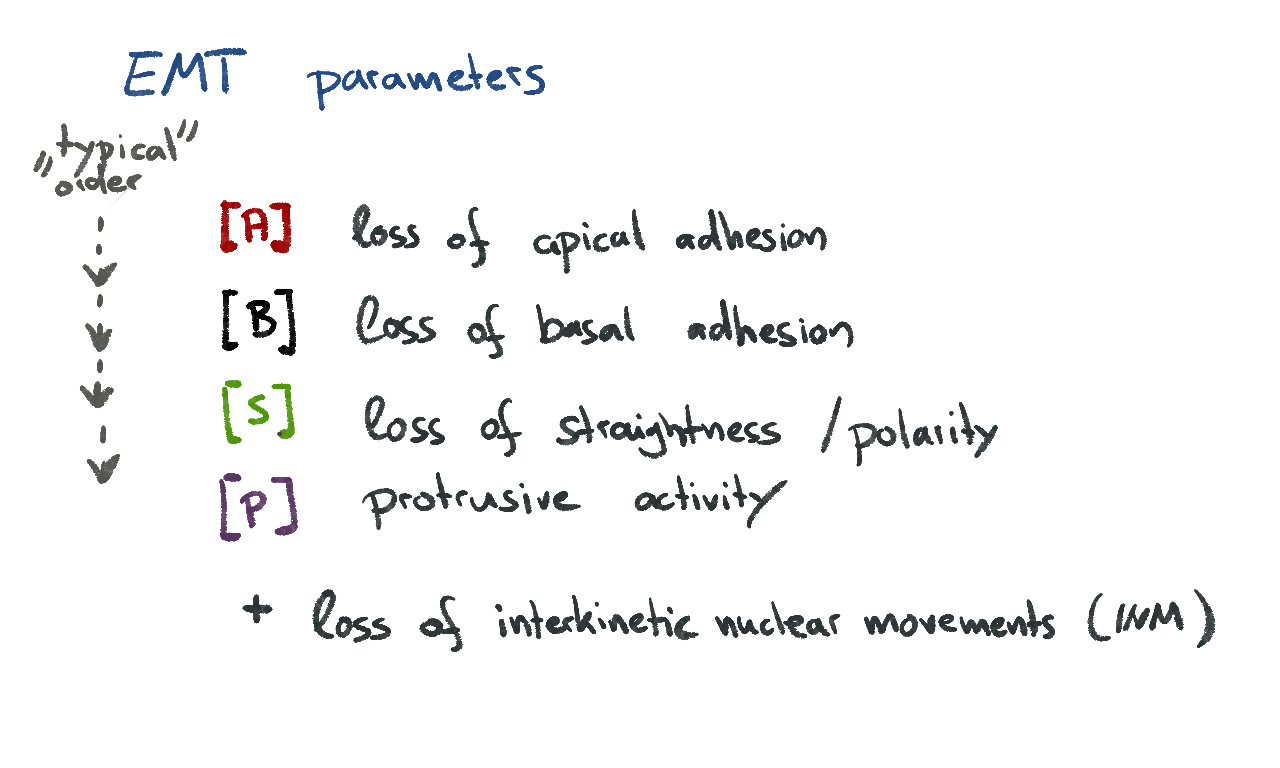 EMT parameters
„typical”
order
[A] loss of apical adhesion
[B] loss of basal adhesion
[S] loss of straightness / polarity
[P] protrusive activity
+ loss of interkinetic nuclear movements (INM)